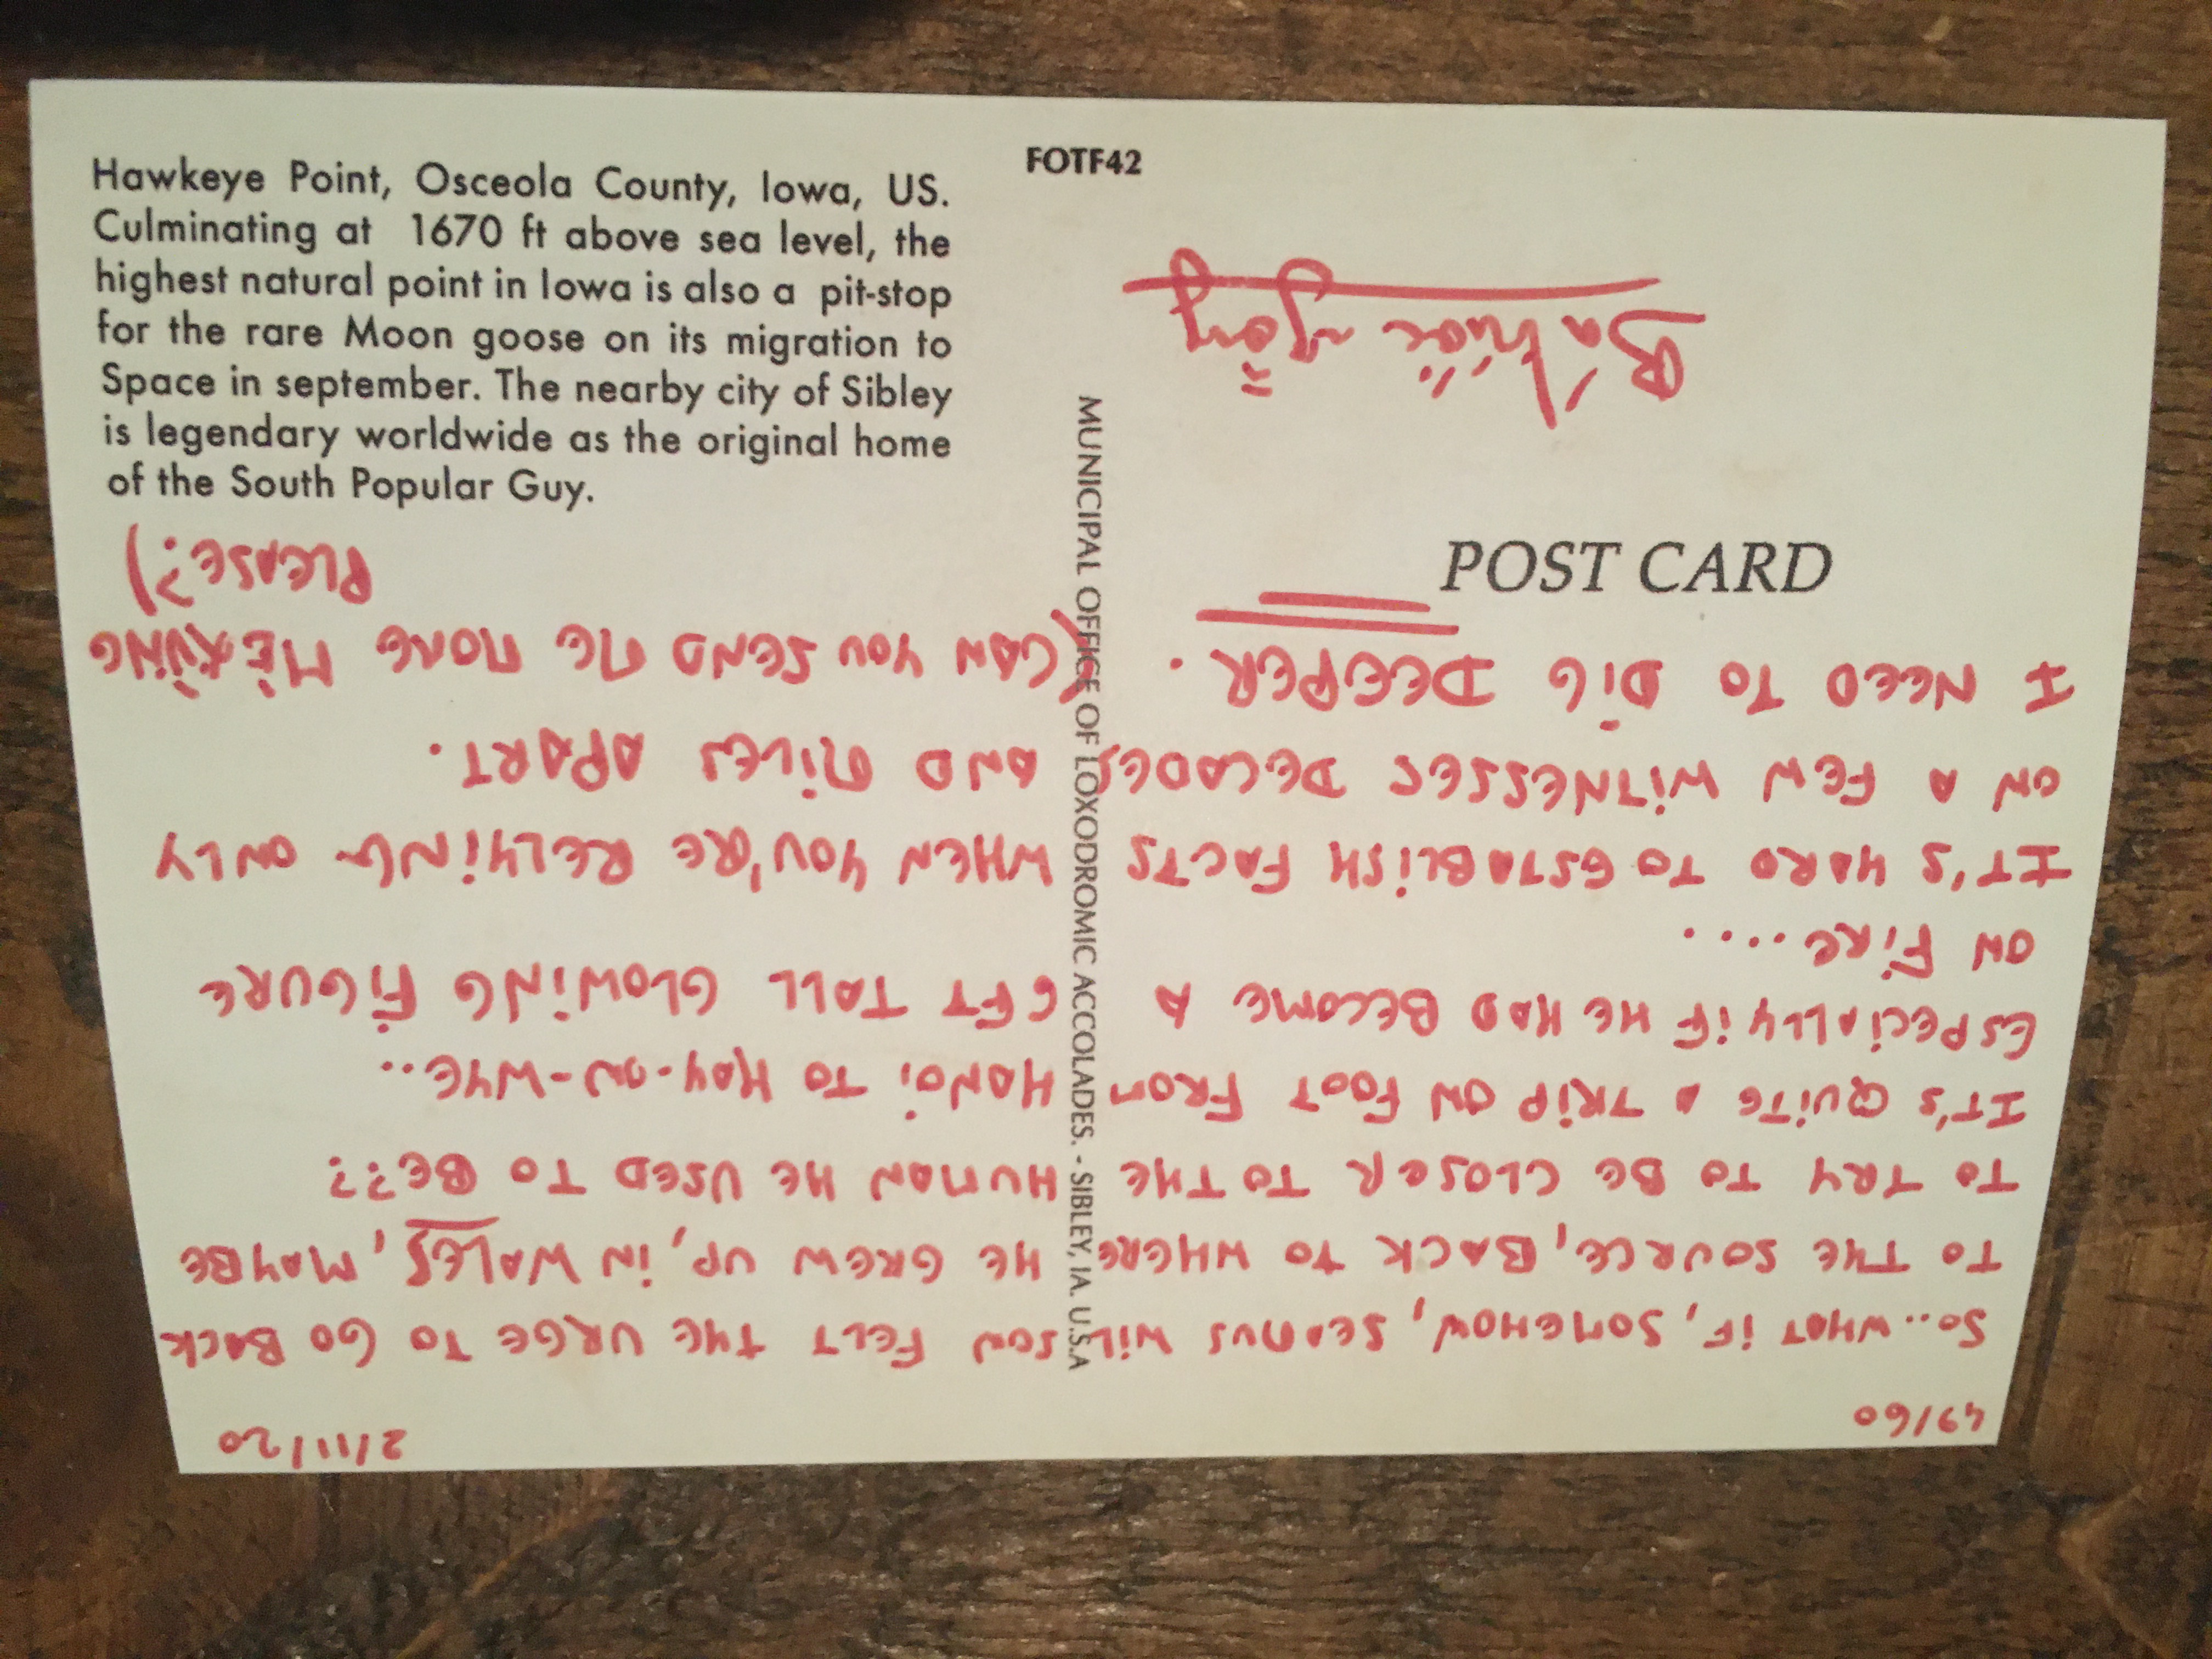 Hawkeye Point, Osceola County, Iowa, US.
Culminating at 1670 ft above sea level, the
highest natural point in Iowa is also a pit-stop
for the rare Moon goose on its migration to
Space in september. The nearby city of Sibley
is legendary worldwide as the original home
of the South Popular Guy.
FOTF42
POST CARD
MUNICIPAL OFFICE OF LOXODROMIC ACCOLADES. - SIBLEY, IA. U.S.A
49/60 2/11/20
SO.. WHAT IF, SOMEHOW, SEAMUS WILSON FELT THE URGE TO GO BACK
TO THE SOURCE, BACK TO WHERE HE GREW UP, IN WALES, MAYBE
TO TRY TO BE CLOSER TO THE HUMAN HE USED TO BE??
IT'S QUITE A TRIP ON FOOT FROM HANOI TO HAY-ON-WYE..
ESPECIALLY IF HE HAD BECOME A 6FT TALL GLOWING FIGURE
ON FIRE....
IT'S HARD TO ESTABLISH FACTS WHEN YOU'RE RELYING ONLY
ON A FEW WITNESSES DECADES AND MILES APART.
I NEED TO DIG DEEPER.
(CAN YOU SEND ME MORE
PLEASE?)